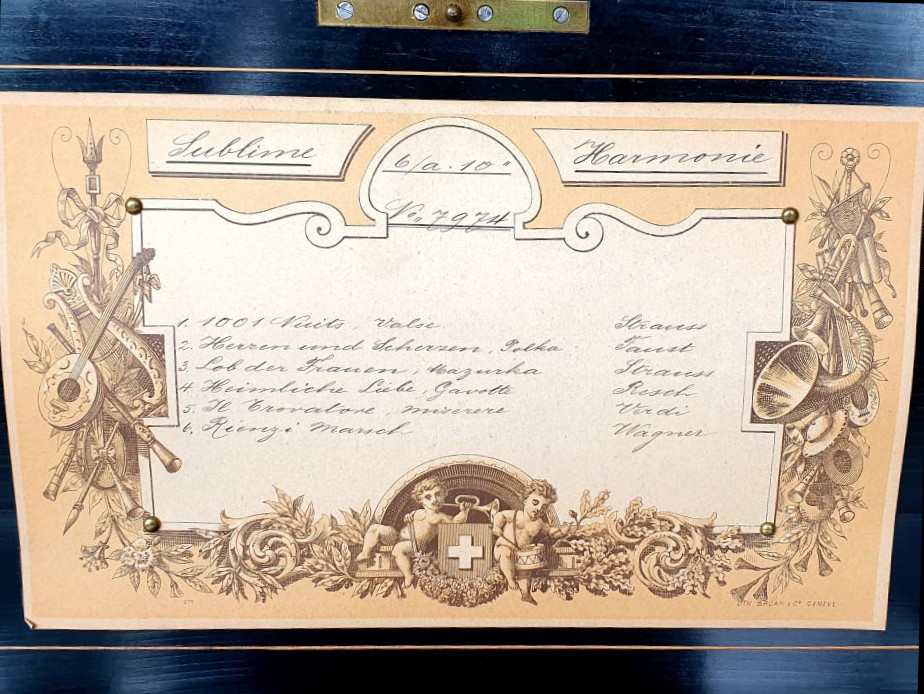 Sublime
6/a. 10"
Harmonie
No. 7974
1. 1001 Nuits, Valse. Strauss
2. Herzen und Scherzen, Polka Faust
3. Lob der Frauen, Mazurka Strauss
4. Heimliche Liebe, Gavotte Resch
5. Il Trovatore, miserere Verdi
6. Rienzi Marsch Wagner
LITH. BRUAN & Cº GENÈVE